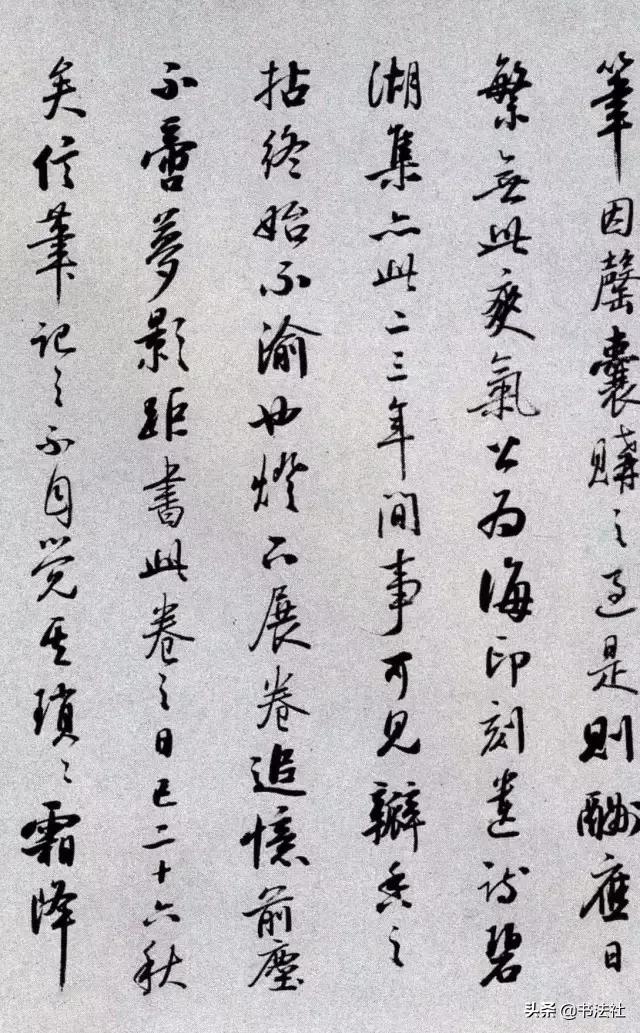 筆因罄囊購之過是則酬應日
繁無此爽氣公為海印刻遺詩碧
湖集亦此二三年間事可見瓣香之
拈終始不渝也燈下展卷追憶前塵
不啻夢影距書此卷之日已二十六秋
矣信筆記之不自覺其瑣瑣霜降
头条@书法社